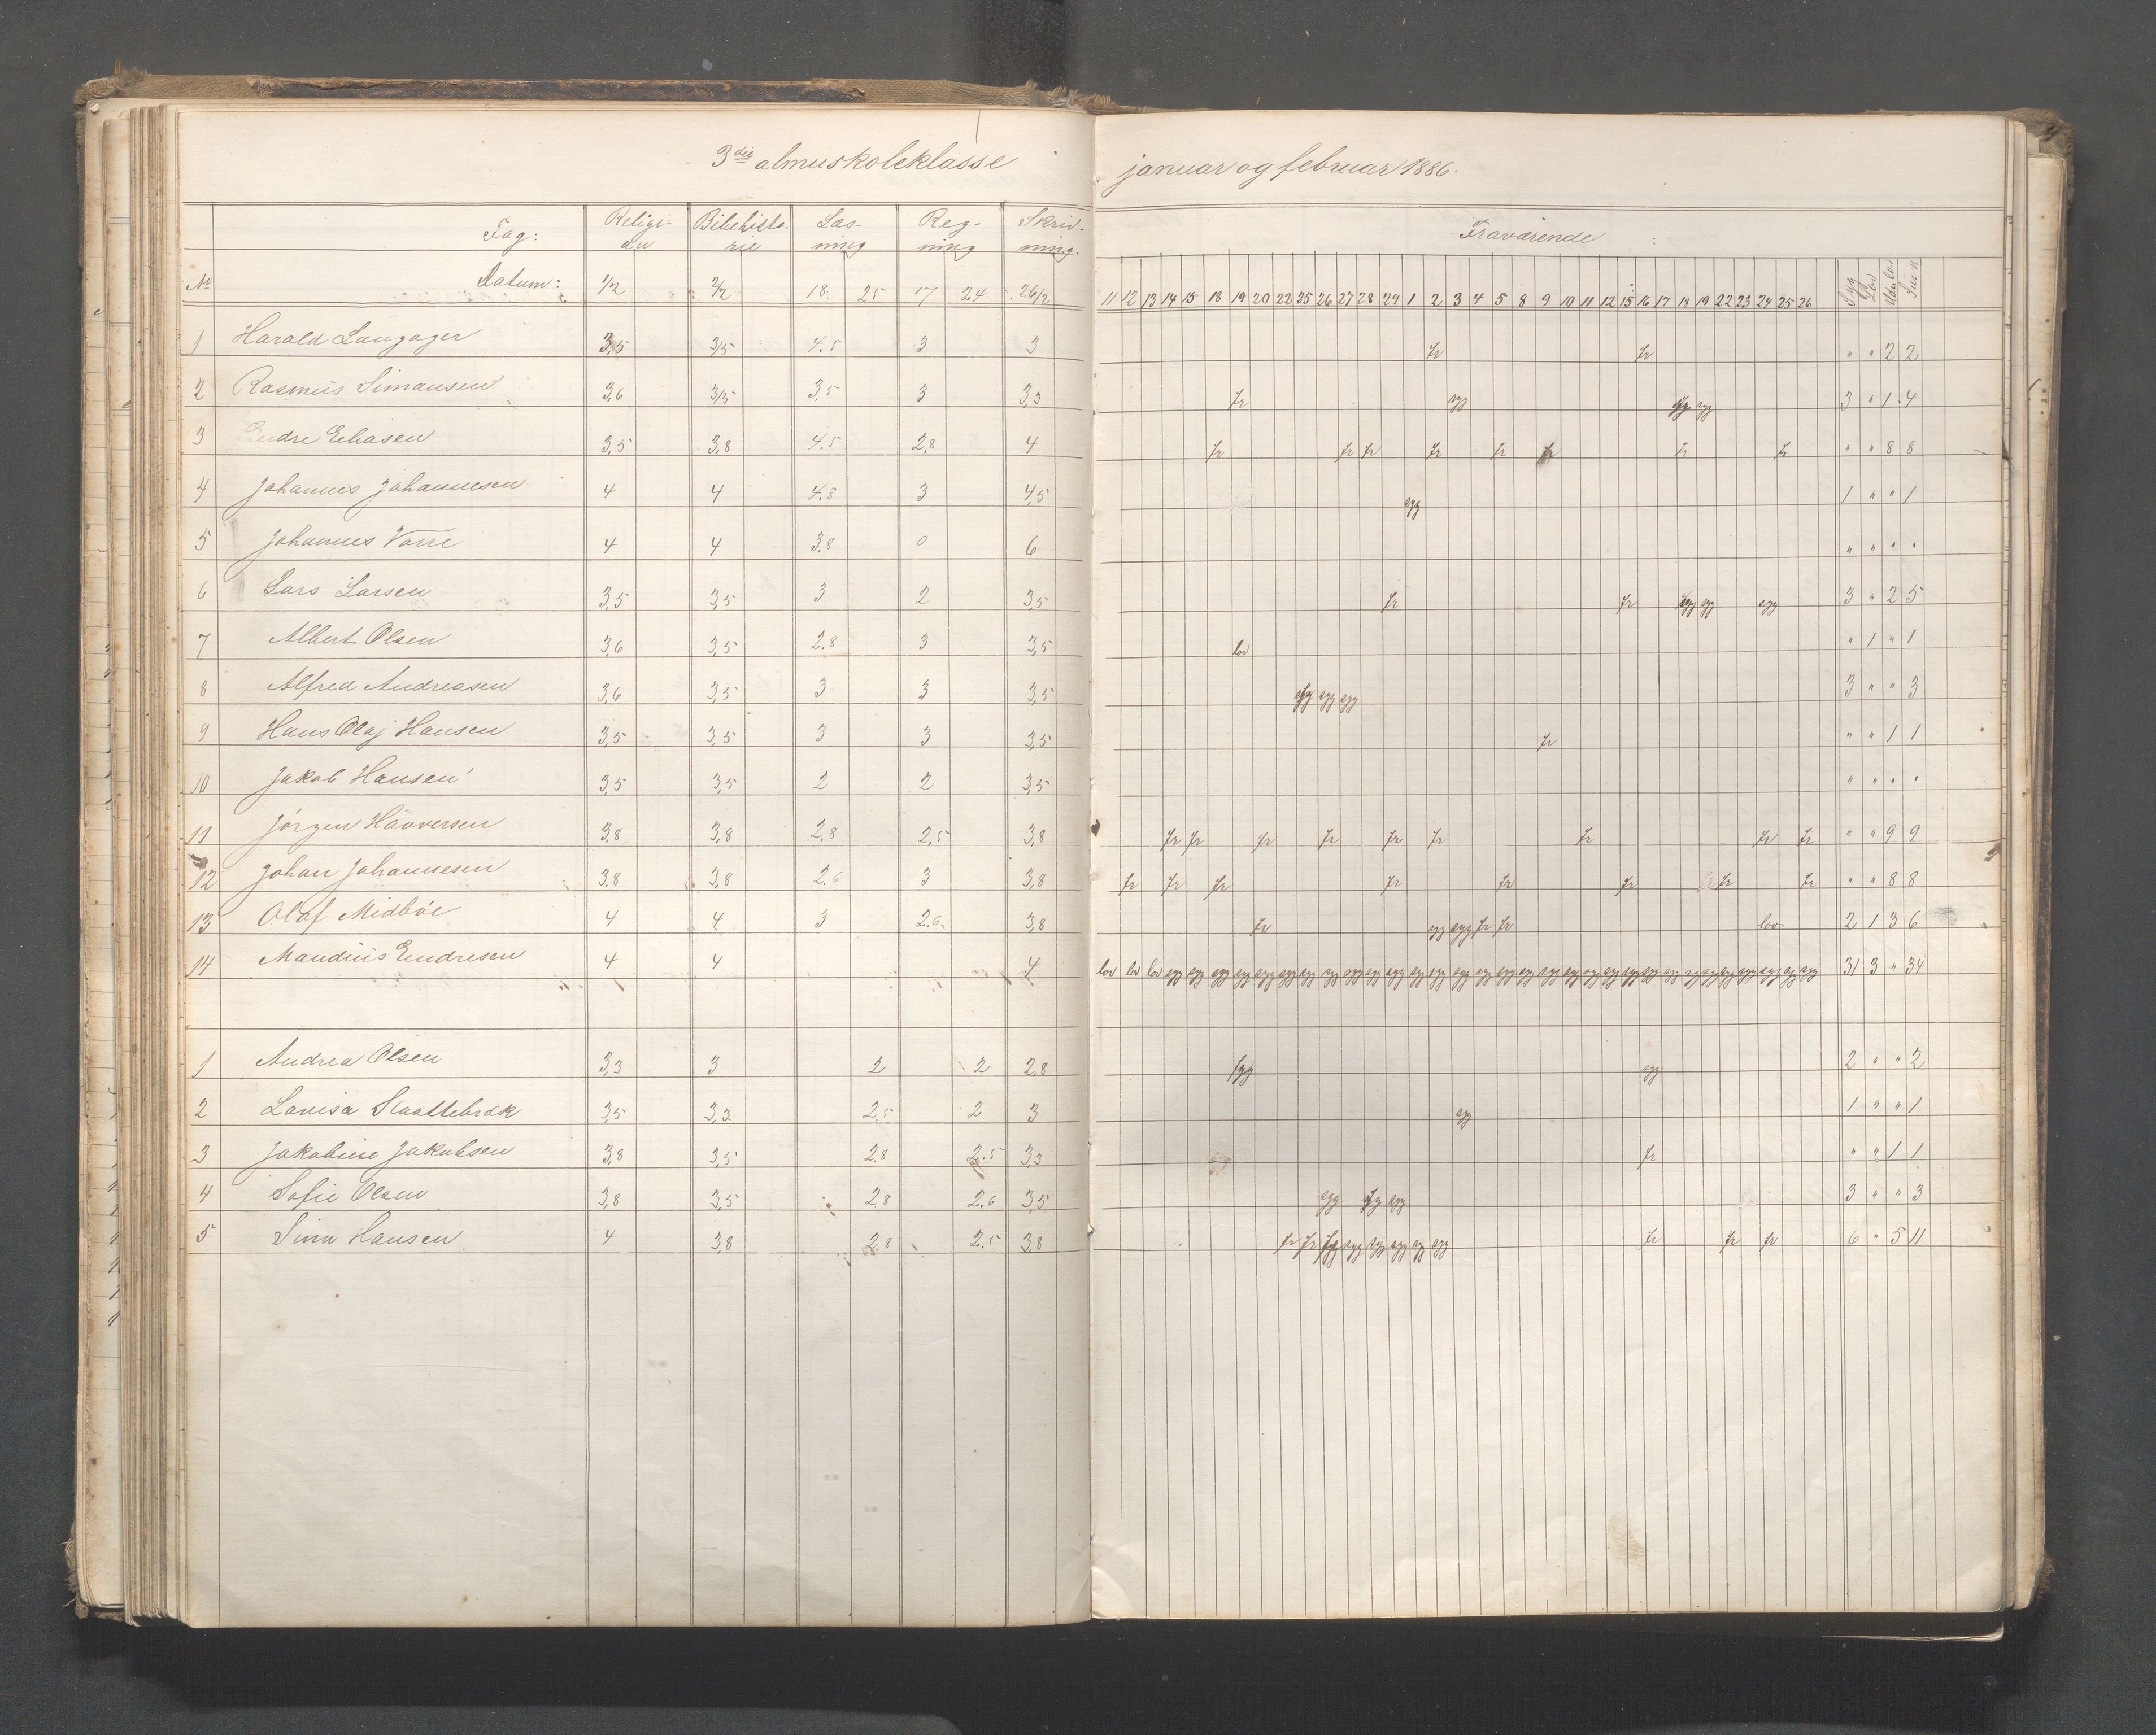 3die almuskoleklasse januar og februar 1886.
Fag: Religion Bibelhistorie Læsning Regning Skrivning. Fraværende
No Datum: 1/2 2/2 18 25 17 24 26/2 11 12 13 14 15 18 19 20 22 25 26 27 28 29 1 2 3 4 5 8 9 10 11 12 15 16 17 18 19 22 23 24 25 26 Syg Lov Sum
1 Harald Langager 3,5 3/5 4.5 3 3 fr fr " " 2 2
2 Rasmus Simonsen 3,6 3/5 3,5 3 3,3 fr syg syg syg 3 " 1 4
3 Endre Eliasen 3,5 3,8 4.5 2,8 4 fr fr fr fr fr fr fr fr " " 8 8
4 Johannes Johannesen 4 4 4.8 3 4,5 syg 1 " " 1
5 Johannes 4 4 3,8 0 6 " " " "
6 Lars Larsen 3,5 3,5 3 2 3,5 fr fr syg syg syg 3 " 2 5
7 Albert Olsen 3,6 3,5 2.8 3 3,5 lov " 1 " 1
8 Alfred Andreasen 3,6 3,5 3 3 3,5 syg syg syg 3 " " 3
9 Hans Olaj Hansen 3,5 3,5 3 3 3,5 fr " " 1 1
10 Jakob Hansen 3,5 3,5 2 2 3,5 " " " "
11 Jörgen Haaversen 3,8 3,8 2,8 2,5 3,8 fr fr fr fr fr fr fr fr fr " " 9 9
12 Johan Johannesen 3,8 3,8 2,6 3 3,8 fr fr fr fr fr fr fr fr " " 8 8
13 Olaf Midböe 4 4 3 2.6 3,8 fr syg syg fr fr lov 2 1 3 6
14 Mandius Endresen 4 4 4 lov lov lov syg syg syg syg syg syg syg syg syg syg syg syg syg syg syg syg syg syg syg syg syg syg syg syg syg syg syg syg syg syg syg 31 3 " 34
1 Andrea Olsen 3,3 3 2 2 2,8 syg syg 2 " " 2
2 Lovisa Slaattebræk 3,5 3,3 2,5 2 3 syg 1 " " 1
3 Jakobine Jakobsen 3,8 3,5 2.8 2.5 3,3 fr " " 1 1
4 Sofie Olsen 3,8 3,5 2.8 2,6 3,5 syg syg syg 3 " " 3
5 Sina Hansen 4 3,8 2.8 2.5 3,8 fr fr syg syg syg syg syg syg fr fr fr 6 " 5 11